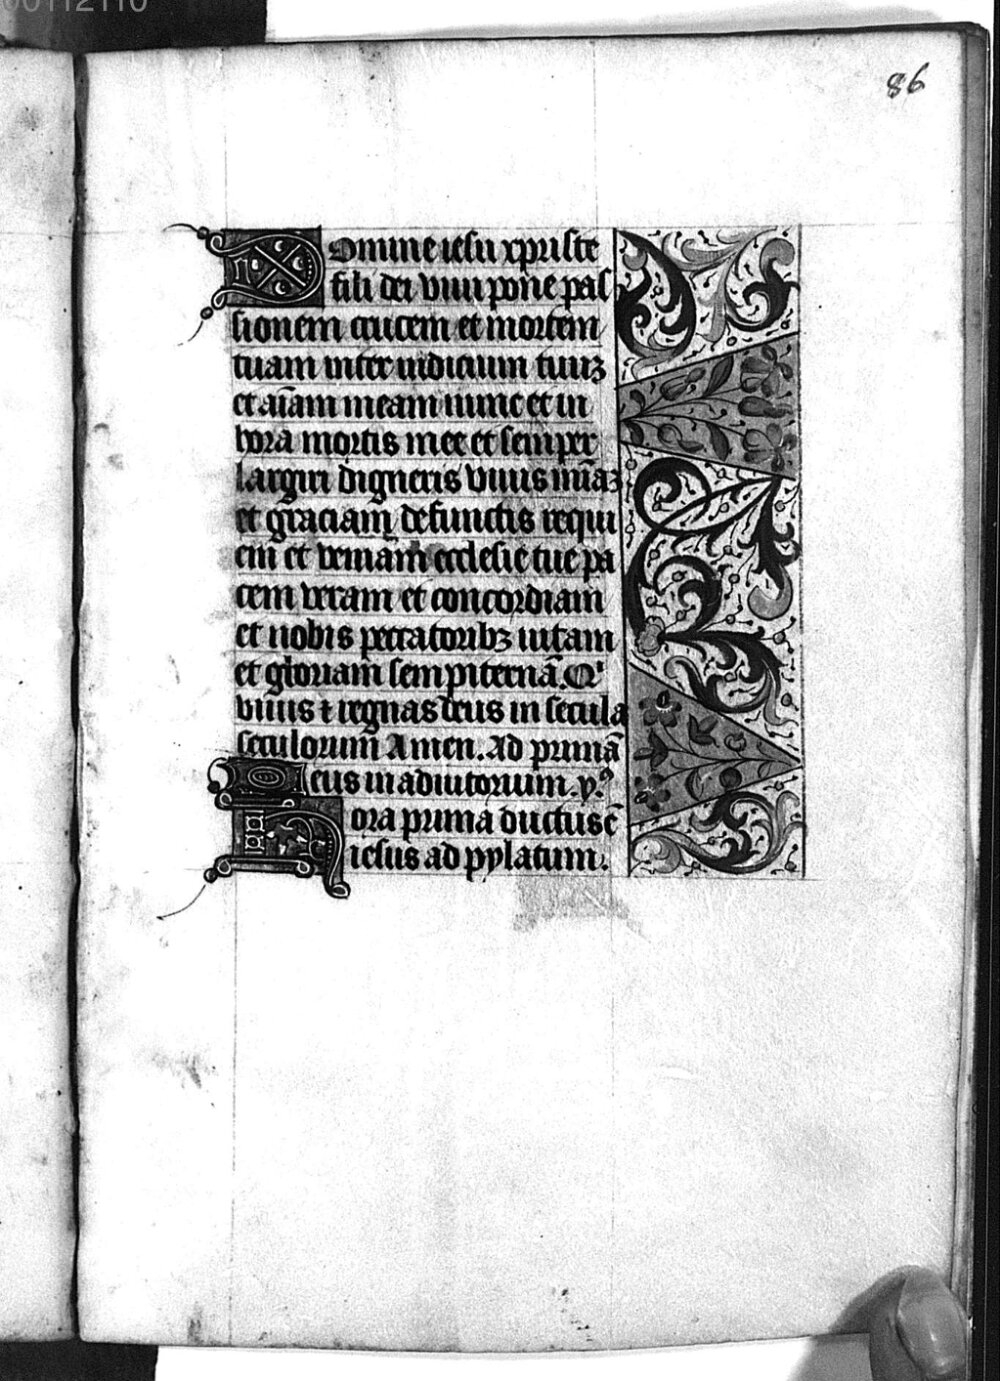 00112110
86
Domine iesu xpriste
fili dei viui pone pas
sionem crucem et mortem
tuam inter iudicium tuuꝫ
et aīam meam nunc et in
hora mortis mee et semper
largiri digneris viuis mīaꝫ
et graciam defunctis requi
em et veniam ecclesie tue pa
cem veram et concordiam
et nobis peccatoribꝫ uitam
et gloriam sempiternā. Qͥ
viuis ⁊ regnas deus in secula
seculorum Amen. Ad primā
Deus in adiutorium. yͦ.
Hora prima ductus ē
iesus ad pylatum.